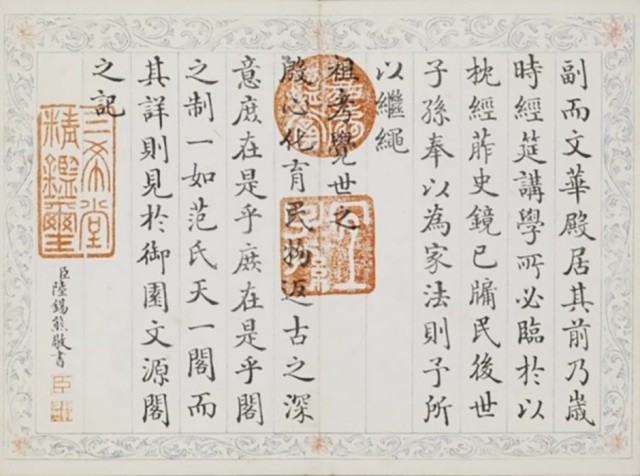 副而文華殿居其前乃歲
時經筵講學所必臨於以
枕經葄史鏡己牖民後世
子孫奉以為家法則予所
以繼繩
祖考覺世之
殷心化育民物返古之深
意庶在是乎庶在是乎閣
之制一如范氏天一閣而
其詳則見於御園文源閣
之記
三希堂
精鑑璽
臣陸錫熊敬書
臣